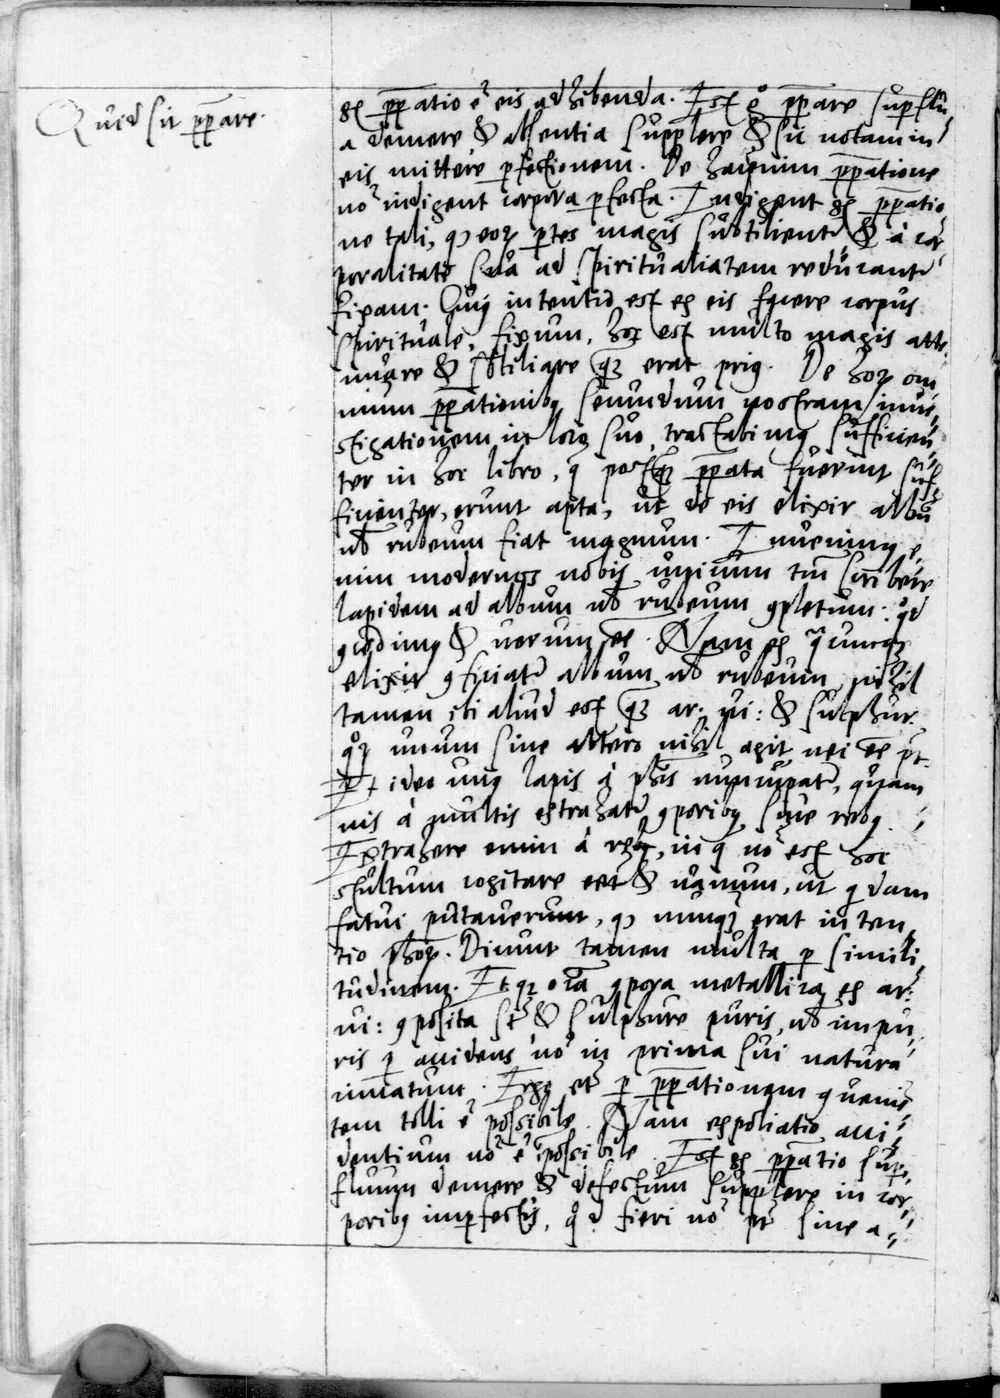 Quid sit ꝑꝑare.
gͦ p̄patio ē eis adhibenda. Est gͦ p̄pare suꝑflu-
a demere & absentia supplere & sic notam in
eis mittere ꝑfectionem. De hac enim p̄patione
nō indigent corpora ꝑfecta. Indigent gͦ p̄patio-
ne tali, qꝫ eoꝝ ꝑtes magis subtilient͛ & à cor-
poralitate sua ad spiritualitatem reducant͛
fixam. Cuiꝰ intentio est ex eis facere corpus
spirituale, fixum, hoc est multo magis atte-
nuare & subtiliare qꝫ erat priꝰ. De hoꝝ om-
nium p̄pationibꝰ secundum nostram inue-
stigationem in locis suo tractabimꝰ sufficien-
ter in hoc libro, q̄ postqꝫ p̄pata fuerint suf-
ficienter, erunt apta, ut de eis elixir albū
uꝉ rubeum fiat magnum. Inuenimꝰ e-
nim modernos nobis unicum tm̄ scribere
lapidem ad album uꝉ rubeum ꝯpletum: qͦd
ꝯcedimꝰ & uerum eē. Nam ex quocunqꝫ
elixir ꝯficiat͛ album uꝉ rubeum, nihil
tamen ibi aliud est qꝫ ar: ui: & sulphur.
qͦꝝ unum sine altero nihil agit nec eē pt̄.
Et ideo unꝰ lapis à phīs nuncupat͛, quam-
uis à multis extrahat͛ ꝯporibꝰ siue rebꝰ.
Extrahere enim à rebꝰ, in q̄ nō est hoc
stultum cogitare eēt & uanum, ut qͥdam
fatui putauerunt, qꝫ nunqꝫ erat inten-
tio phōꝝ. Dicunt tamen multa ꝑ simili-
tudinem. Etqꝫ oīa ꝯpora metallica ex ar:
ui: ꝯposita st̄ & sulphure puris, uꝉ impu-
ris ꝑ accidens nō in prima sui natura
innatum. Ergo et ꝑ p̄pationem ꝯuenien-
tem tolli ē possibile. Nam expoliatio acci-
dentium nō ē īpossibile. Est gͦ p̄patio suꝑ-
fluum demere & defectum supplere in cor-
poribꝰ imꝑfectis, qͦd fieri nō pt̄ sine a-